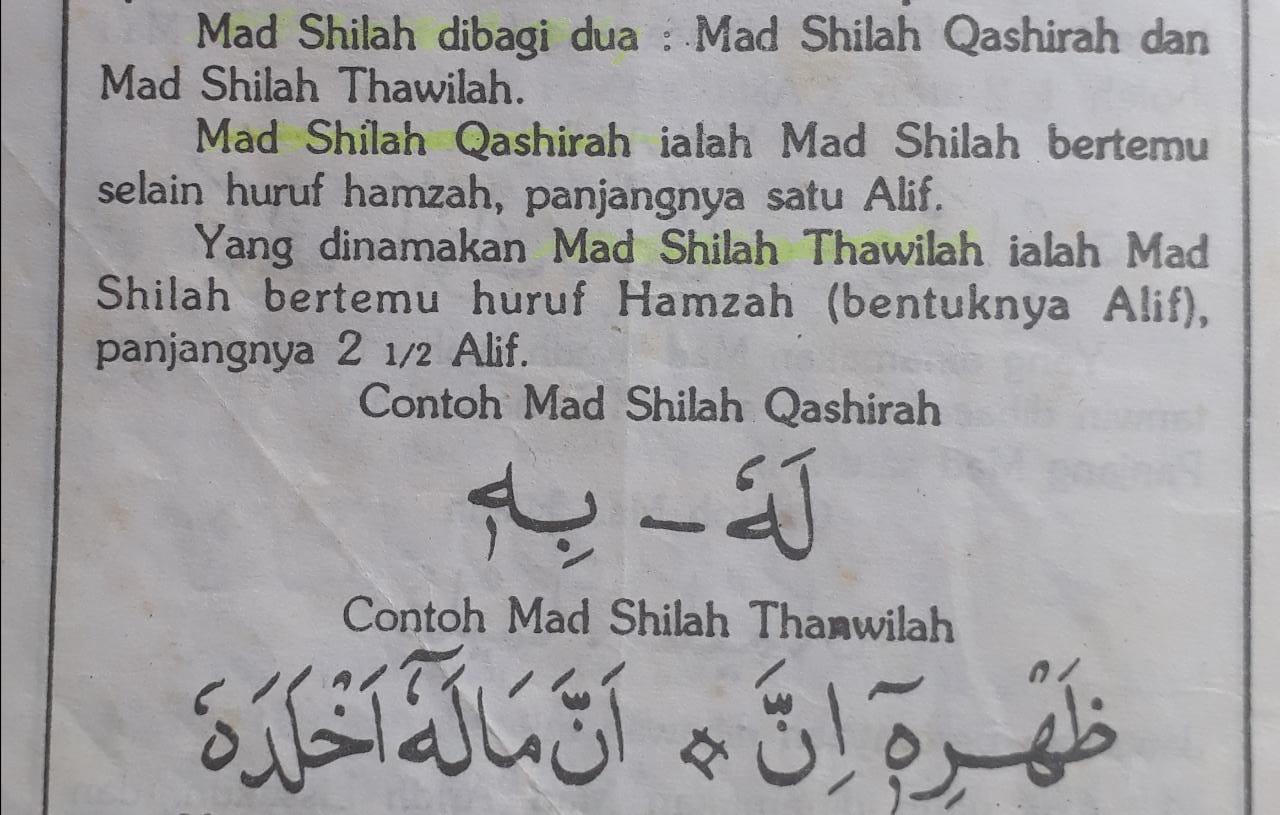 Mad Shilah dibagi dua : Mad Shilah Qashirah dan
Mad Shilah Thawilah.
Mad Shilah Qashirah ialah Mad Shilah bertemu
selain huruf hamzah, panjangnya satu Alif.
Yang dinamakan Mad Shilah Thawilah ialah Mad
Shilah bertemu huruf Hamzah (bentuknya Alif),
panjangnya 2 1/2 Alif.
Contoh Mad Shilah Qashirah
لَهٗ - بِهٖ
Contoh Mad Shilah Thanwilah
ظَهْرِهٖٓ اِنَّ ۞ اَنَّ مَالَهٗٓ اَخْلَدَهٗ